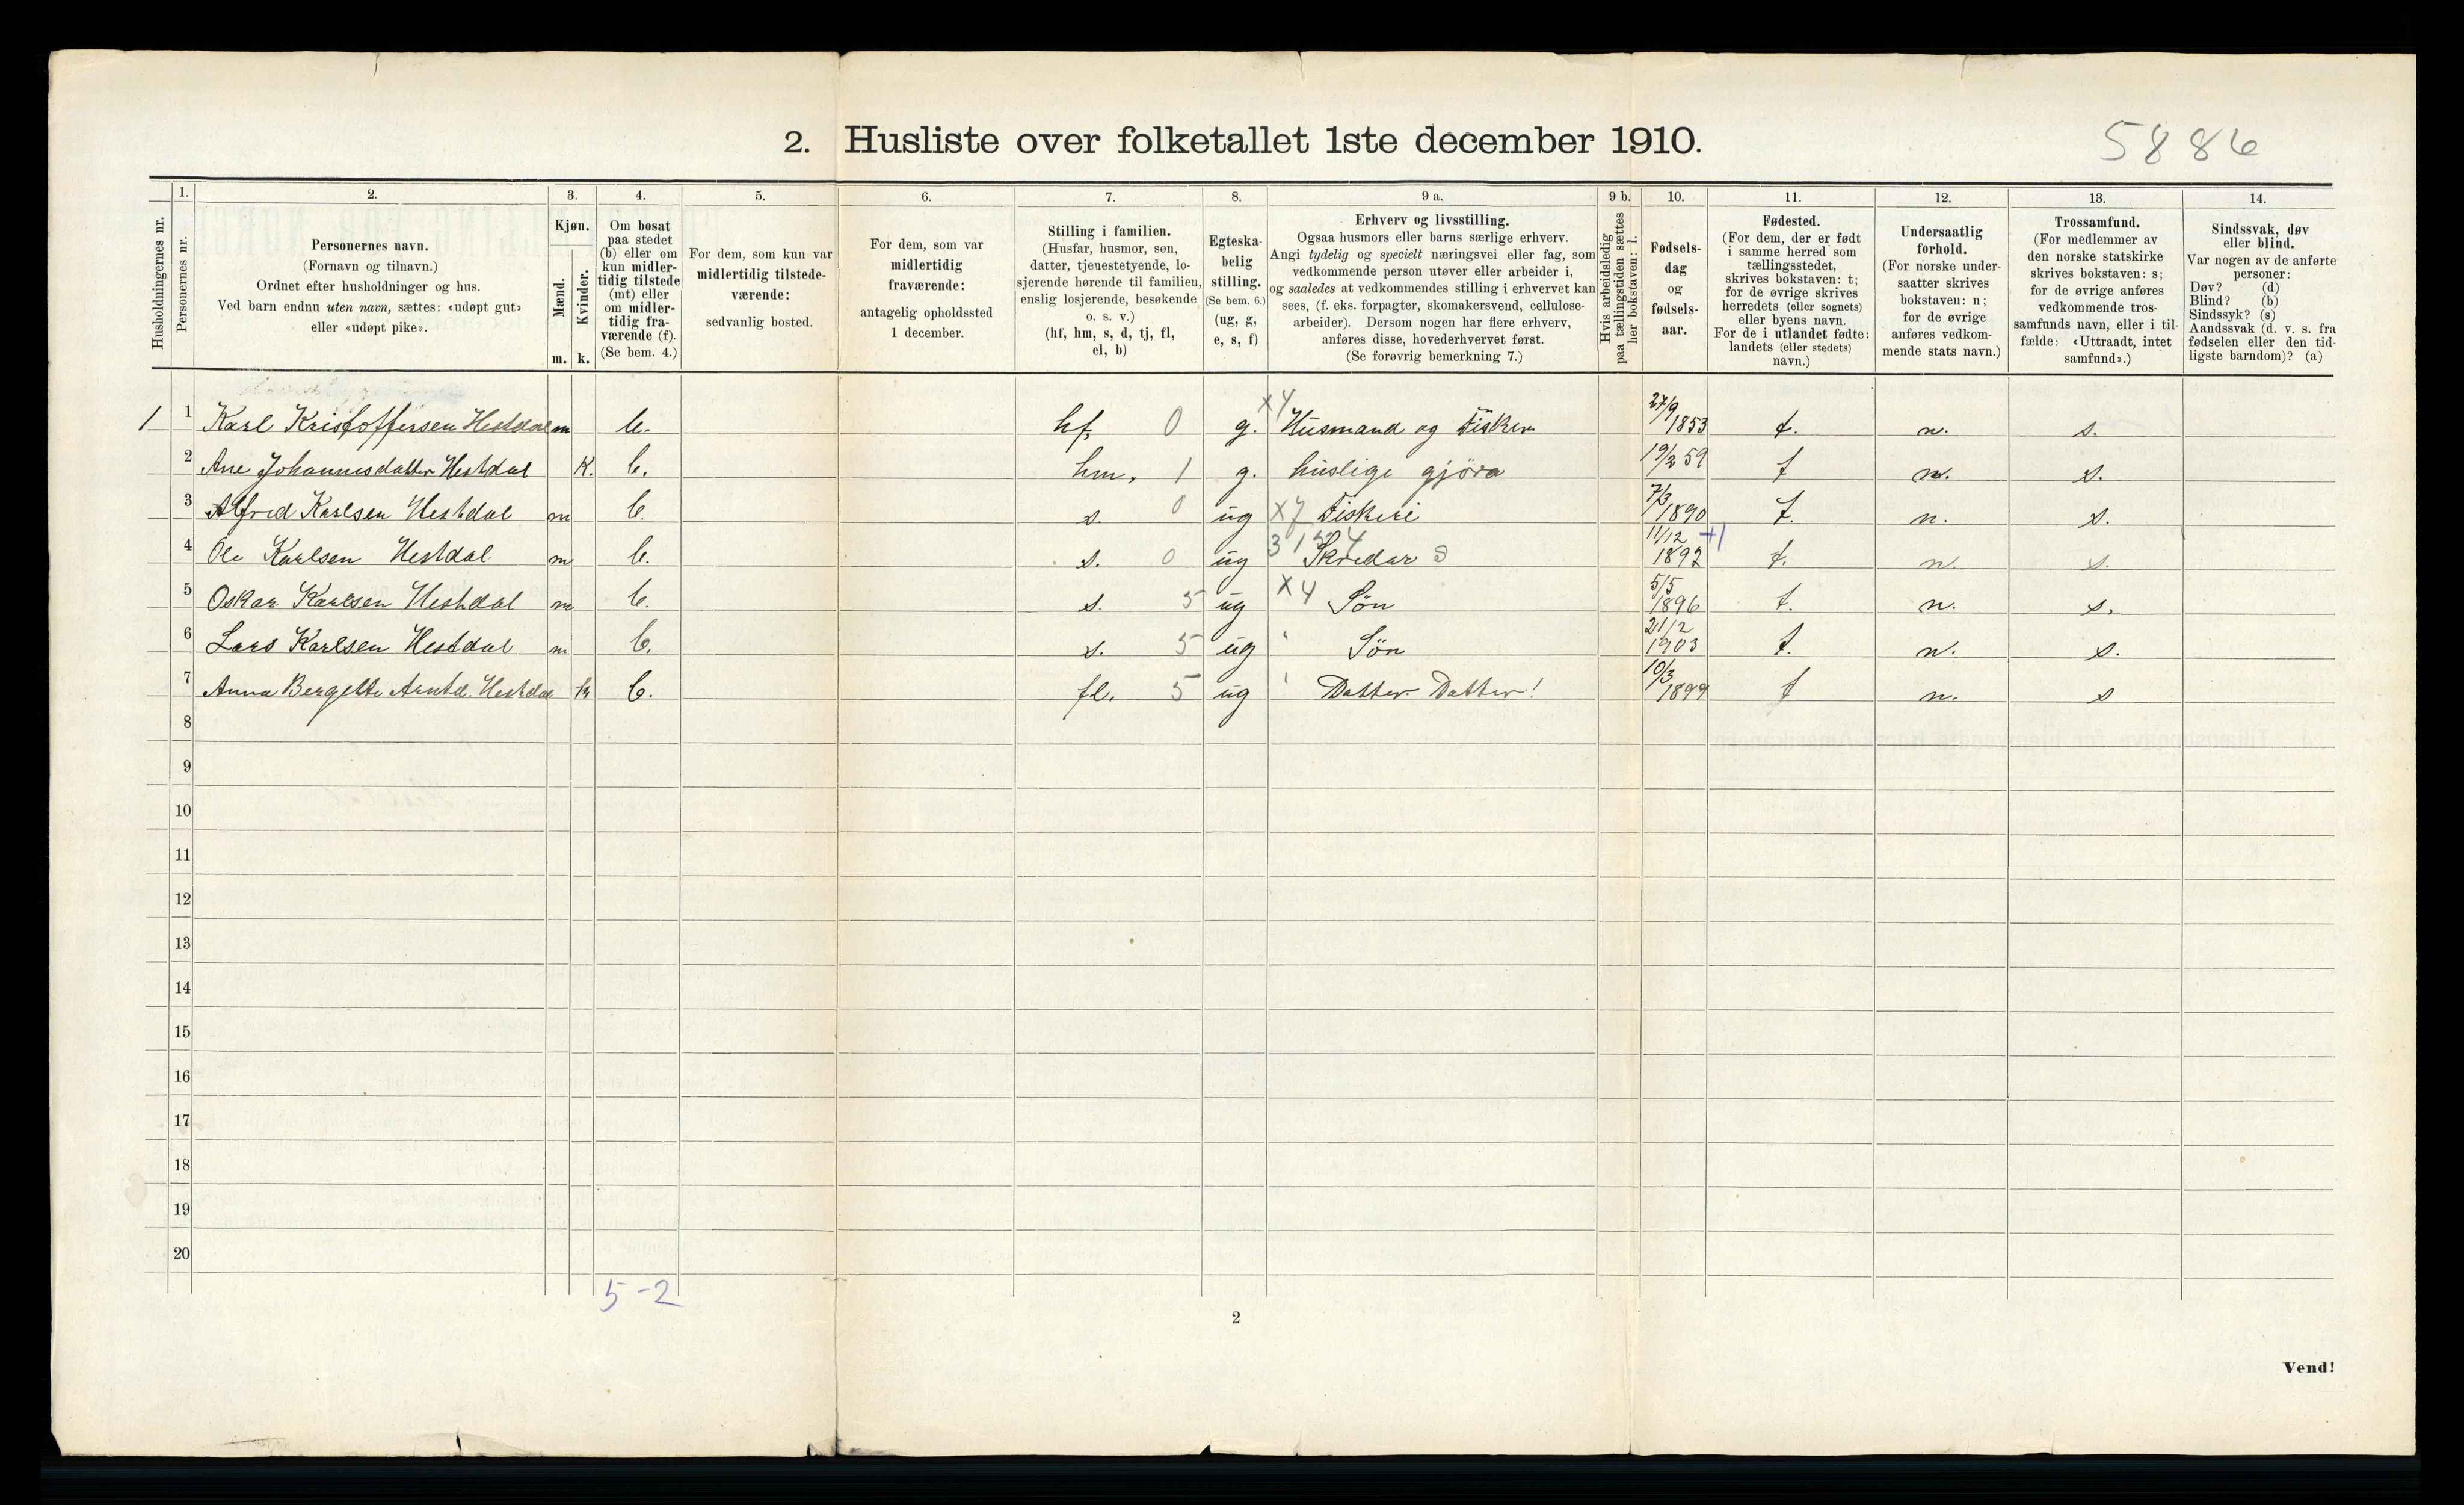 2. Husliste over folketallet 1ste december 1910.
5886
Husholdningernes nr.
1.
Personernes nr.
2.
Personernes navn.
(Fornavn og tilnavn.)
Ordnet efter husholdninger og hus.
Ved barn endnu uten navn, sættes: «udøpt gut»
eller «udøpt pike».
3.
Kjøn.
Mænd.
Kvinder.
m. k.
4.
Om bosat
paa stedet
(b) eller om
kun midler-
tidig tilstede
(mt) eller
om midler-
tidig fra-
værende (f).
(Se bem. 4.)
5.
For dem, som kun var
midlertidig tilstede-
værende:
sedvanlig bosted.
6.
For dem, som var
midlertidig
fraværende:
antagelig opholdssted
1 december.
7.
Stilling i familien.
(Husfar, husmor, søn,
datter, tjenestetyende, lo-
sjerende hørende til familien,
enslig losjerende, besøkende
o. s. v.)
(hf, hm, s, d, tj, fl,
el, b)
8.
Egteska-
belig
stilling.
(Se bem. 6.)
(ug, g,
e, s, f)
9 a.
Erhverv og livsstilling.
Ogsaa husmors eller barns særlige erhverv.
Angi tydelig og specielt næringsvei eller fag, som
vedkommende person utøver eller arbeider i,
og saaledes at vedkommendes stilling i erhvervet kan
sees, (f. eks. forpagter, skomakersvend, cellulose-
arbeider). Dersom nogen har flere erhverv,
anføres disse, hovederhvervet først.
(Se forøvrig bemerkning 7.)
9 b.
Hvis arbeidsledig
paa tællingstiden sættes
her bokstaven: l.
10.
Fødsels-
dag
og
fødsels-
aar.
11.
Fødested.
(For dem, der er født
i samme herred som
tællingsstedet,
skrives bokstaven: t;
for de øvrige skrives
herredets (eller sognets)
eller byens navn.
For de i utlandet fødte:
landets (eller stedets)
navn.)
12.
Undersaatlig
forhold.
(For norske under-
saatter skrives
bokstaven: n;
for de øvrige
anføres vedkom-
mende stats navn.)
13.
Trossamfund.
(For medlemmer av
den norske statskirke
skrives bokstaven: s;
for de øvrige anføres
vedkommende tros-
samfunds navn, eller i til-
fælde: «Uttraadt, intet
samfund».)
14.
Sindssvak, døv
eller blind.
Var nogen av de anførte
personer:
Døv? (d)
Blind? (b)
Sindssyk? (s)
Aandssvak (d. v. s. fra
fødselen eller den tid-
ligste barndom)? (a)
1 1 Karl Kristoffersen Hestdal m b. hf. 0 g. x4 Husmand og Fisker 27/9 1853 t. n. s.
2 Ane Johannesdatter Hestdal k. b. hm. 1 g. huslige gjöra 19/2 59 t n. s.
3 Alfred Karlsen Hestdal m b. s. 0 ug x7 Fiskeri 7/3 1890 t. n. s.
4 Ole Karlsen Hestdal m b. s. 0 ug Skredar S 11/12 1892 +1 t. n. s.
5 Oskar Karlsen Hestdal m b. s. 5 ug x4 Sön 5/5 1896 t. n. s.
6 Lars Karlsen Hestdal m b. s. 5 ug " Sön 21/2 1903 t. n. s.
7 Anna Bergitte Arntd. Hestdal k b. fl. 5 ug " Datter Datter! 10/3 1899 t n. s
8
9
10
11
12
13
14
15
16
17
18
19
20
5-2
2
Vend!